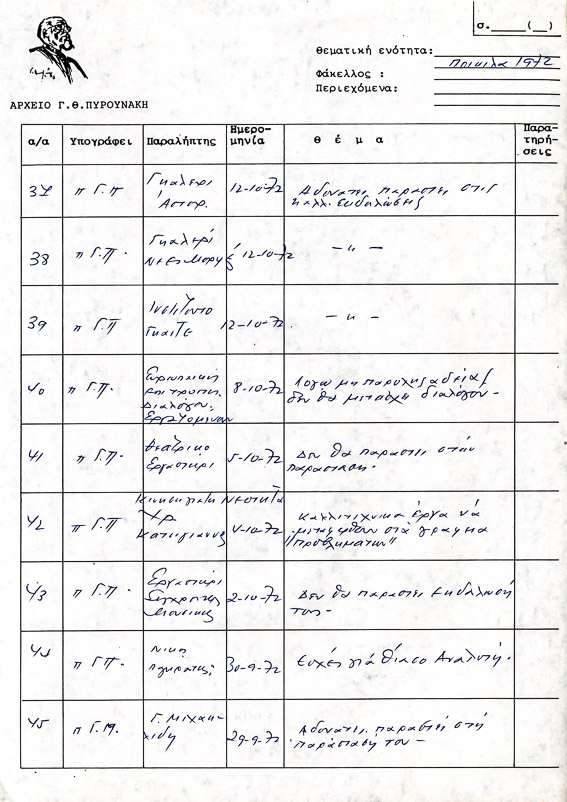 σ.____(__)
θεματική ενότητα: Ποικίλα 1972
Φάκελλος :
Περιεχόμενα:
ΑΡΧΕΙΟ Γ.Θ.ΠΥΡΟΥΝΑΚΗ
α/α Υπογράφει Παραλήπτης Ημερομηνία θέμα Παρατηρήσεις
37 π Γ.Π Γκαλερί Άστορ. 12-10-72 Αδυνατεί παραστεί στις καλλ. Εκδηλώσεις
38 π Γ.Π. Γκαλερί Νέες Μορφές 12-10-72 - " -
39 π Γ.Π Ινστιτούτο Γκαίτε 12-10-72. - " -
40 π Γ.Π. Επιτροπή Διαλόγου. Εργαζομένων 8-10-72 Λόγω μη παροχής αδείας δεν θα μετάσχη διαλόγου -
41 π Γ.Π. Θεατρικό Εργαστήρι 5-10-72 Δεν θα παραστεί στην παράσταση.
42 π Γ.Π Χρ. 4-10-72 Καλλιτεχνικά έργα να μεταφερθούν στα γραφεία "Προβλημάτων"
43 π Γ.Π. Εργαστήρι Σύγχρονης Μουσικής 2-10-72 Δεν θα παραστεί εκδήλωσή τους -
44 π Γ.Π. Νίκη 30-9-72 Ευχές για θίασο Αναλυτή.
45 π Γ.Π. Γ. Μιχαηλίδη 29-9-72 Αδυνατεί παραστεί στη παράστασή του -